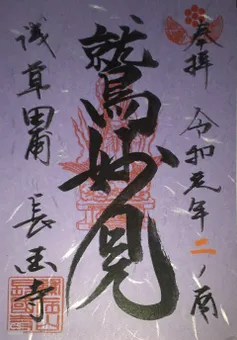 奉拝
令和元年二ノ酉
鷲妙見
浅草田甫 長国寺